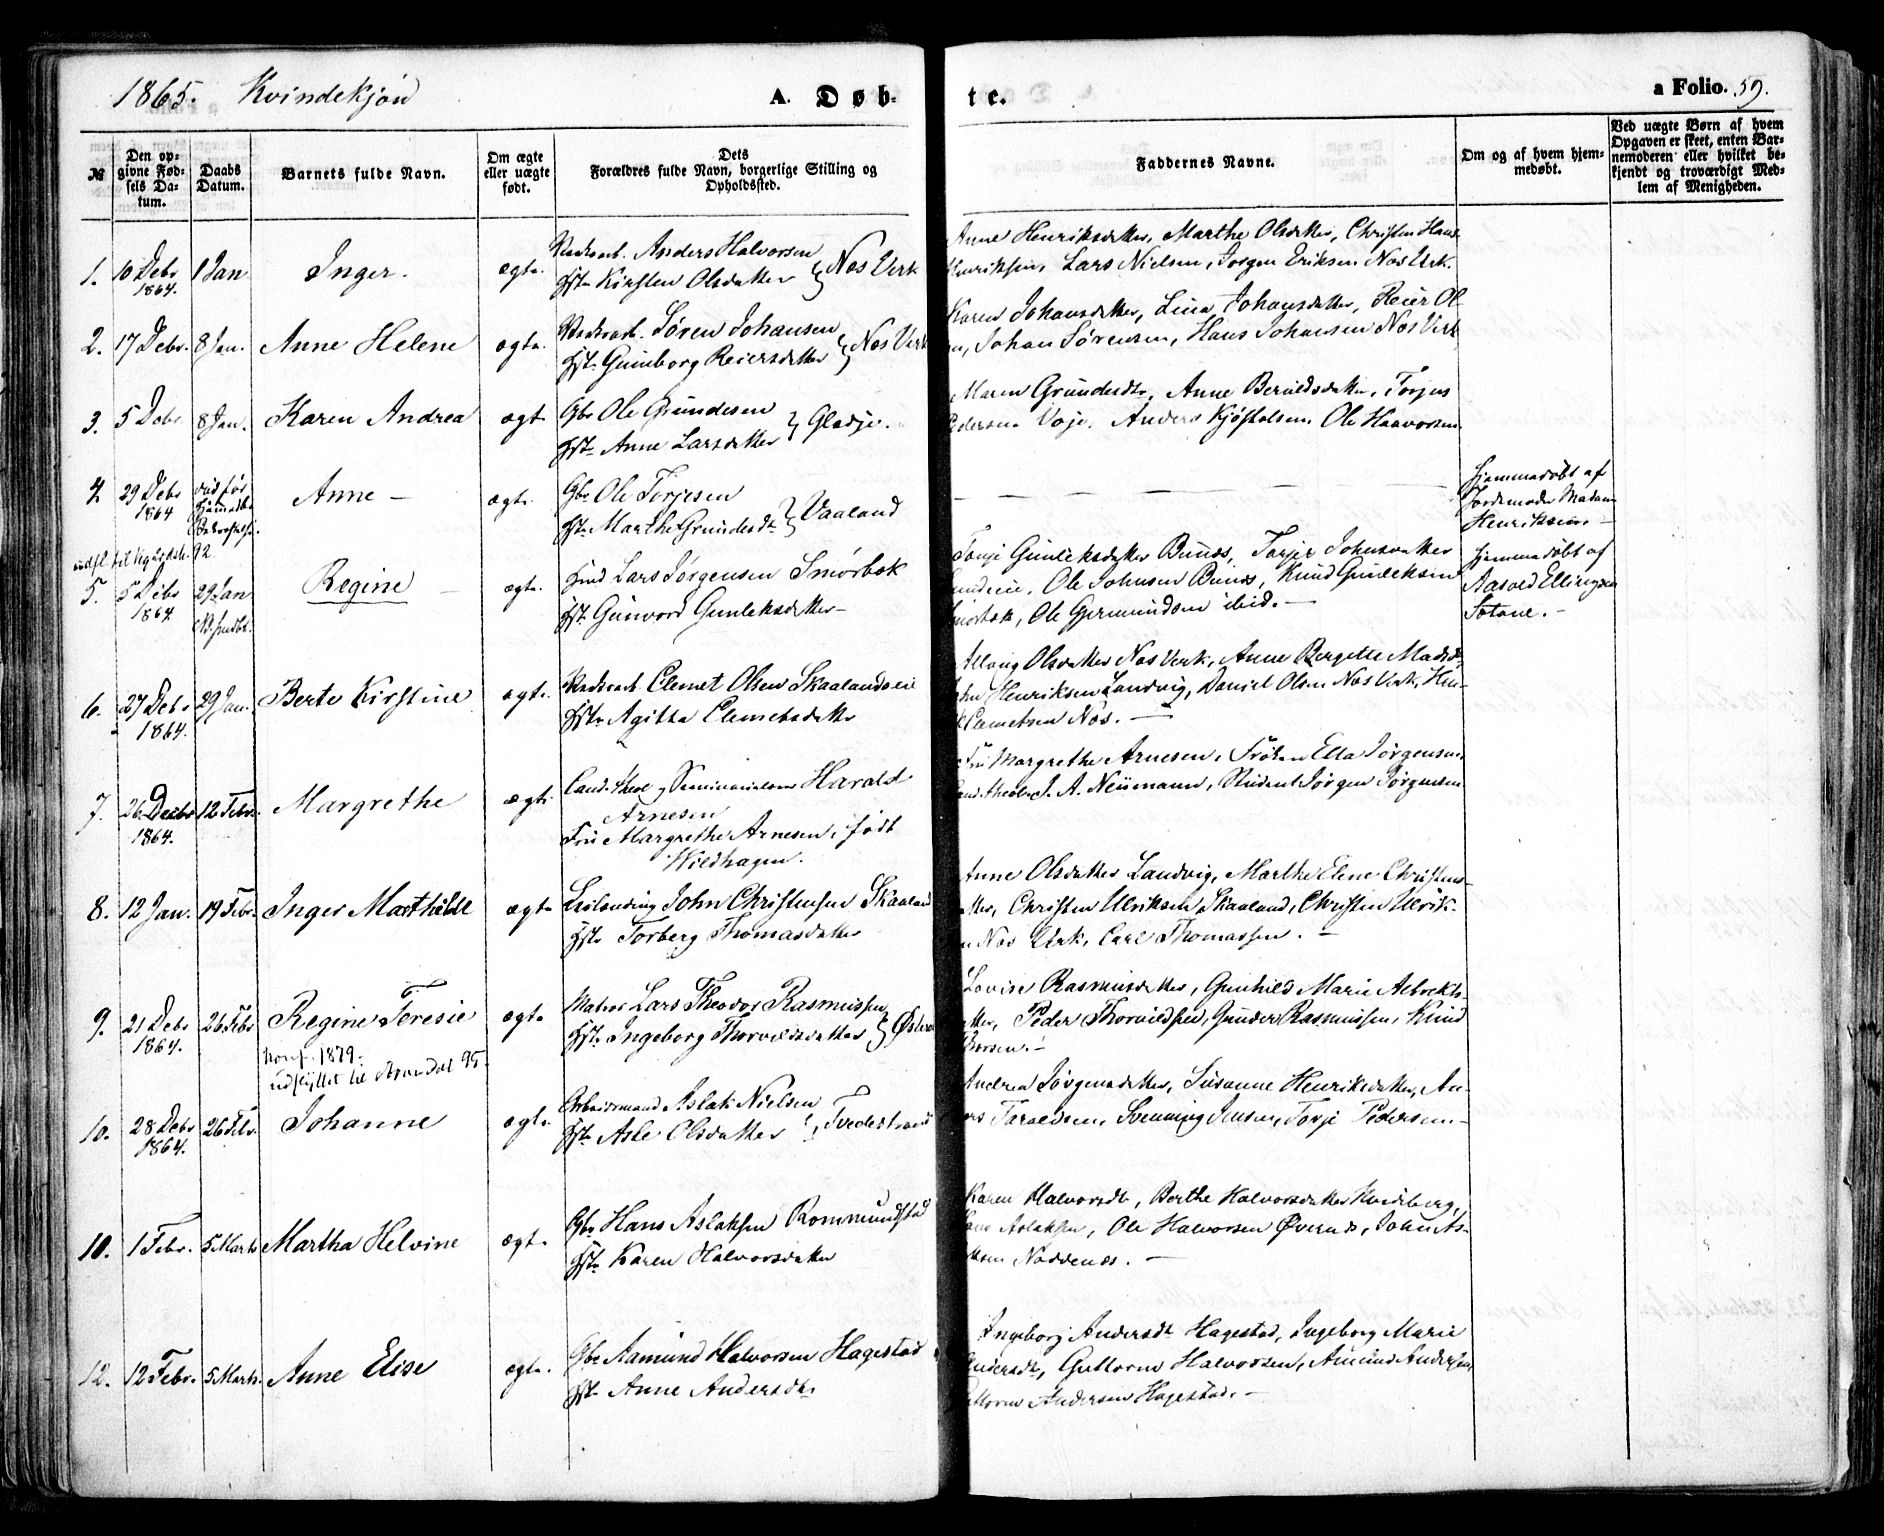 1865. Kvindekjön
A. Døb-
te.
a Folio. 59.
№
Den op-
givne Fød-
sels Da-
tum.
Daabs
Datum.
Barnets fulde Navn.
Om ægte
eller uægte
født.
Dets
Forældres fulde Navn, borgerlige Stilling og
Opholdssted.
Faddernes Navne.
Om og af hvem hjem-
medøbt.
Ved uægte Børn af hvem
Opgaven er skeet, enten Bar-
nemoderen eller hvilket be-
kjendt og troværdigt Med-
lem af Menigheden.
1. 10 Debr 1 Jan Inger. ægte. Anders Halvorsen
1864. Kirsten Olsdatter } Næs Verk
Anne Henriksdatter, Marthe Olsdatter, Christen Hans
Henriksen, Lars Nielsen, Jørgen Eriksen Næs Verk.
2. 17 Debr. 8 Jan. Anne Helene ægte. Søren Johansen
Gunborg Reiersdatter } Næs Verk
Karen Johansdatter, Lina Johansdatter, Reier Ol
Johan Sørensen, Hans Johansen Næs Verk
3. 5 Debr 8 Jan. Karen Andrea ægte Gbr Ole Grundesen
Anne Larsdatter } Gladje.
Maren Grundesdtr, Anne Beruldsdatter, Torjus
Pedersen Voje, Anders Kjøstolsen, Ole Haavorsen
4. 29 Debr Anne – ægte. Gbr Ole Torjesen
1864 Marthe Grundesdt } Vaaland
Hjemmedøbt af
Jordemoder Madam
Henriksen. –
5. 5 Debr 29 Jan Regine ægte. Lars Jørgensen Smørbok
1864 Gunvord Gunleksdatter –
Gunleksdatter Bunæs, Torjer Johnsdatter
Ole Johnsen Bunæs, Knud Gunleksen
Ole Gjermundsen ibid. –
Hjemmedøbt af
Aasold Ellingsen
Solane. –
6. 27 Debr 29 Jan. Berte Kirstine ægte. Clemet Olsen Skaalandseie
1864. Agitha Clemetsdatter
Olsdatter Næs Verk, Anne Bergette Madsd
Henriksen Landvig, Daniel Olsen Næs Verk, Hen-
Clemetsen Næs. –
7. 26 Decbr 12 Febr. Margrethe ægte. Cand. theol. Harald
1864. Arnesen
Fru Margrethe Arnesen, født
Wildhagen.
Fru Margrethe Arnesen, Frøken Ella Jørgensen,
J. A. Neumann, Student Jørgen Jørgensen
8. 12 Jan. 19 Febr. Inger Mathilde ægte John Christensen Skaaland
Torberg Thomasdatter
Anne Olsdatter Landvig, Marthe Elene Christens-
Christen Ulriksen Skaaland, Christen Ulrik-
Næs Verk, Carl Thomassen. –
9. 21 Debr 26 Febr Regine Teresie ægte Matros Lars Theodor Rasmussen
1864. Ingeborg Thorvildsdatter }
Konf. 1879.
udflyttet til Arendal 95.
Lovise Rasmusdatter, Gunhild Marie
Peder Thorvildsen, Gunder Rasmussen, Knud
10. 28 Debr 26 Febr. Johanne ægte. Arbeidsmand Aslak Nielsen
1864. Aslé Olsdatter } Tvedestrand
Andrea Jørgensdatter, Susanne Henriksdatter, An-
Taraldsen, Svenning Jensen, Torje Pedersen. –
10. 1 Febr. 5 Marts Martha Helvine ægte. Gbr Hans Aslaksen Rommundstad
Karen Halvorsdatter
Karen Halvorsdt, Berthe Halvorsdatter
Aslaksen, Ole Halvorsen Øvernæs, John As-
Noddenæs. –
12. 12 Febr. 5 Marts. Anne Elise ægte. Gbr Aamund Halvorsen Hagestad
Anne Andersdtr
Ingeborg Andersdt Hagestad, Ingeborg Marie
Andersdt, Guttorm Halvorsen, Amund Andersen,
Guttorm Andersen Hagestad. –